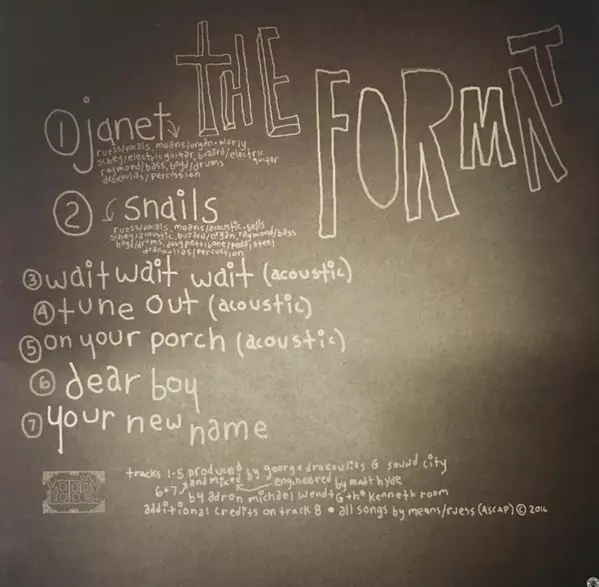 THE FORMAT
① janet
ruess/vocals, means/organ + wurly
schey/electric guitar, buzard/electric guitar
raymond/bass, boyd/drums
drakoulias/percussion
② snails
ruess/vocals, means/acoustic + bells
schey/acoustic, buzard/organ, raymond/bass
boyd/drums, doug pettibone/pedal steel
drakoulias/percussion
③ wait wait wait (acoustic)
④ tune out (acoustic)
⑤ on your porch (acoustic)
⑥ dear boy
⑦ your new name
vanity label
tracks 1-5 produced by george drakoulias @ sound city
and mixed engineered by matt hyde
6+7 by adron michael wendt @ the kenneth room
additional credits on track 8 • all songs by means/ruess (ASCAP) © 2016